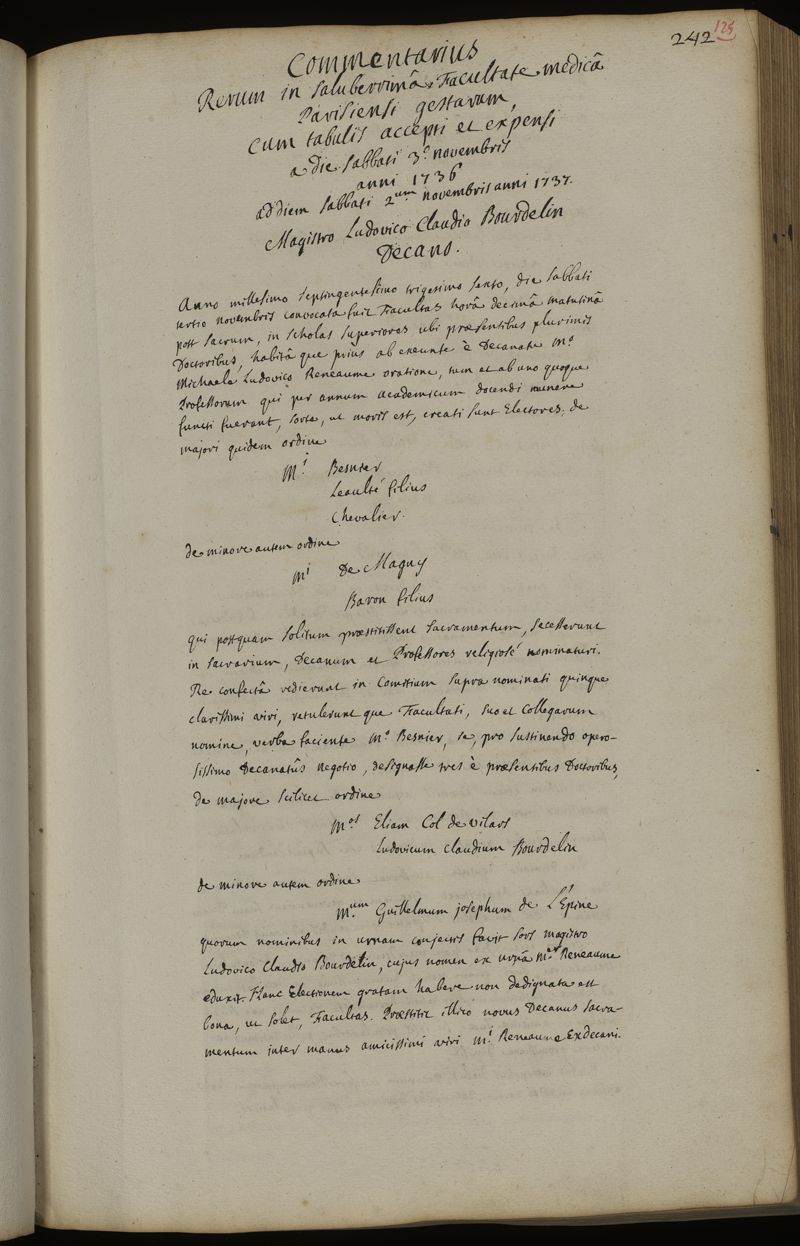 242
125
Commentarius
Rerum in saluberrimâ Facultate medicâ
Parisiensi gestarum,
cum tabulis accepti et expensi
a die sabbati 3ª novembris
anni 1736
ad diem sabbati 2um novembris anni 1737.
Magistro Ludovico Claudio Bourdelin
Decano.
Anno millesimo septingentesimo trigesimo sexto, die sabbati
tertio novembris convocata fuit Facultas horâ decimâ matutinâ
post sacrum, in scholas superiores ubi præsentibus plurimis
Doctoribus, habitâ que prius ab exeunte è Decanatu M.º
Michaele Ludovico Reneaume oratione, tum et ab uno quoque
Professorum qui per annum academicum docendi munere
functi fuerant, sorte, ut moris est, creati sunt Electores; de
majori quidem ordine
M.i Besnier
Leaulté filius
Chevalier.
de minore autem ordine
M.i De Magny
Baron filius
qui postquam solitum præstitissent sacramentum, secesserunt
in sacrarium, Decanum et Professores religiosé nominaturi.
Re confectâ redierunt in Comitium supra nominati quinque
clarissimi viri, retulerunt que Facultati, suo et Collegarum
nomine, verba faciente M.º Besnier, se, pro sustinendo opero-
sissimo Decanatûs negotio, designasse tres è præsentibus Doctoribus,
de majore scilicet ordine
M.os Eliam Col de vilars
Ludovicum Claudium Bourdelin
de minore autem ordine
M.um Guillelmum josephum de L'Épine
quorum nominibus in urnam conjectis favit sors magistro
Ludovico Claudio Bourdelin, cujus nomen ex urnâ M.er Reneaume
eduxit. Hanc Electionem gratam habere non dedignata est
bona, ut solet, Facultas. Præstitit illico novus Decanus sacra-
mentum inter manus amicissimi viri M.i Reneaume Exdecani.